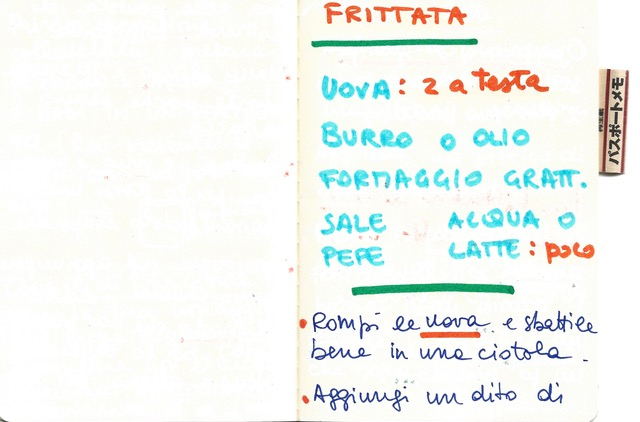 FRITTATA
UOVA: 2 a testa
BURRO o OLIO
FORMAGGIO GRATT.
SALE ACQUA O
PEPE LATTE: poco
• Rompi le uova e sbattile
bene in una ciotola.
• Aggiungi un dito di
パスポートメモ